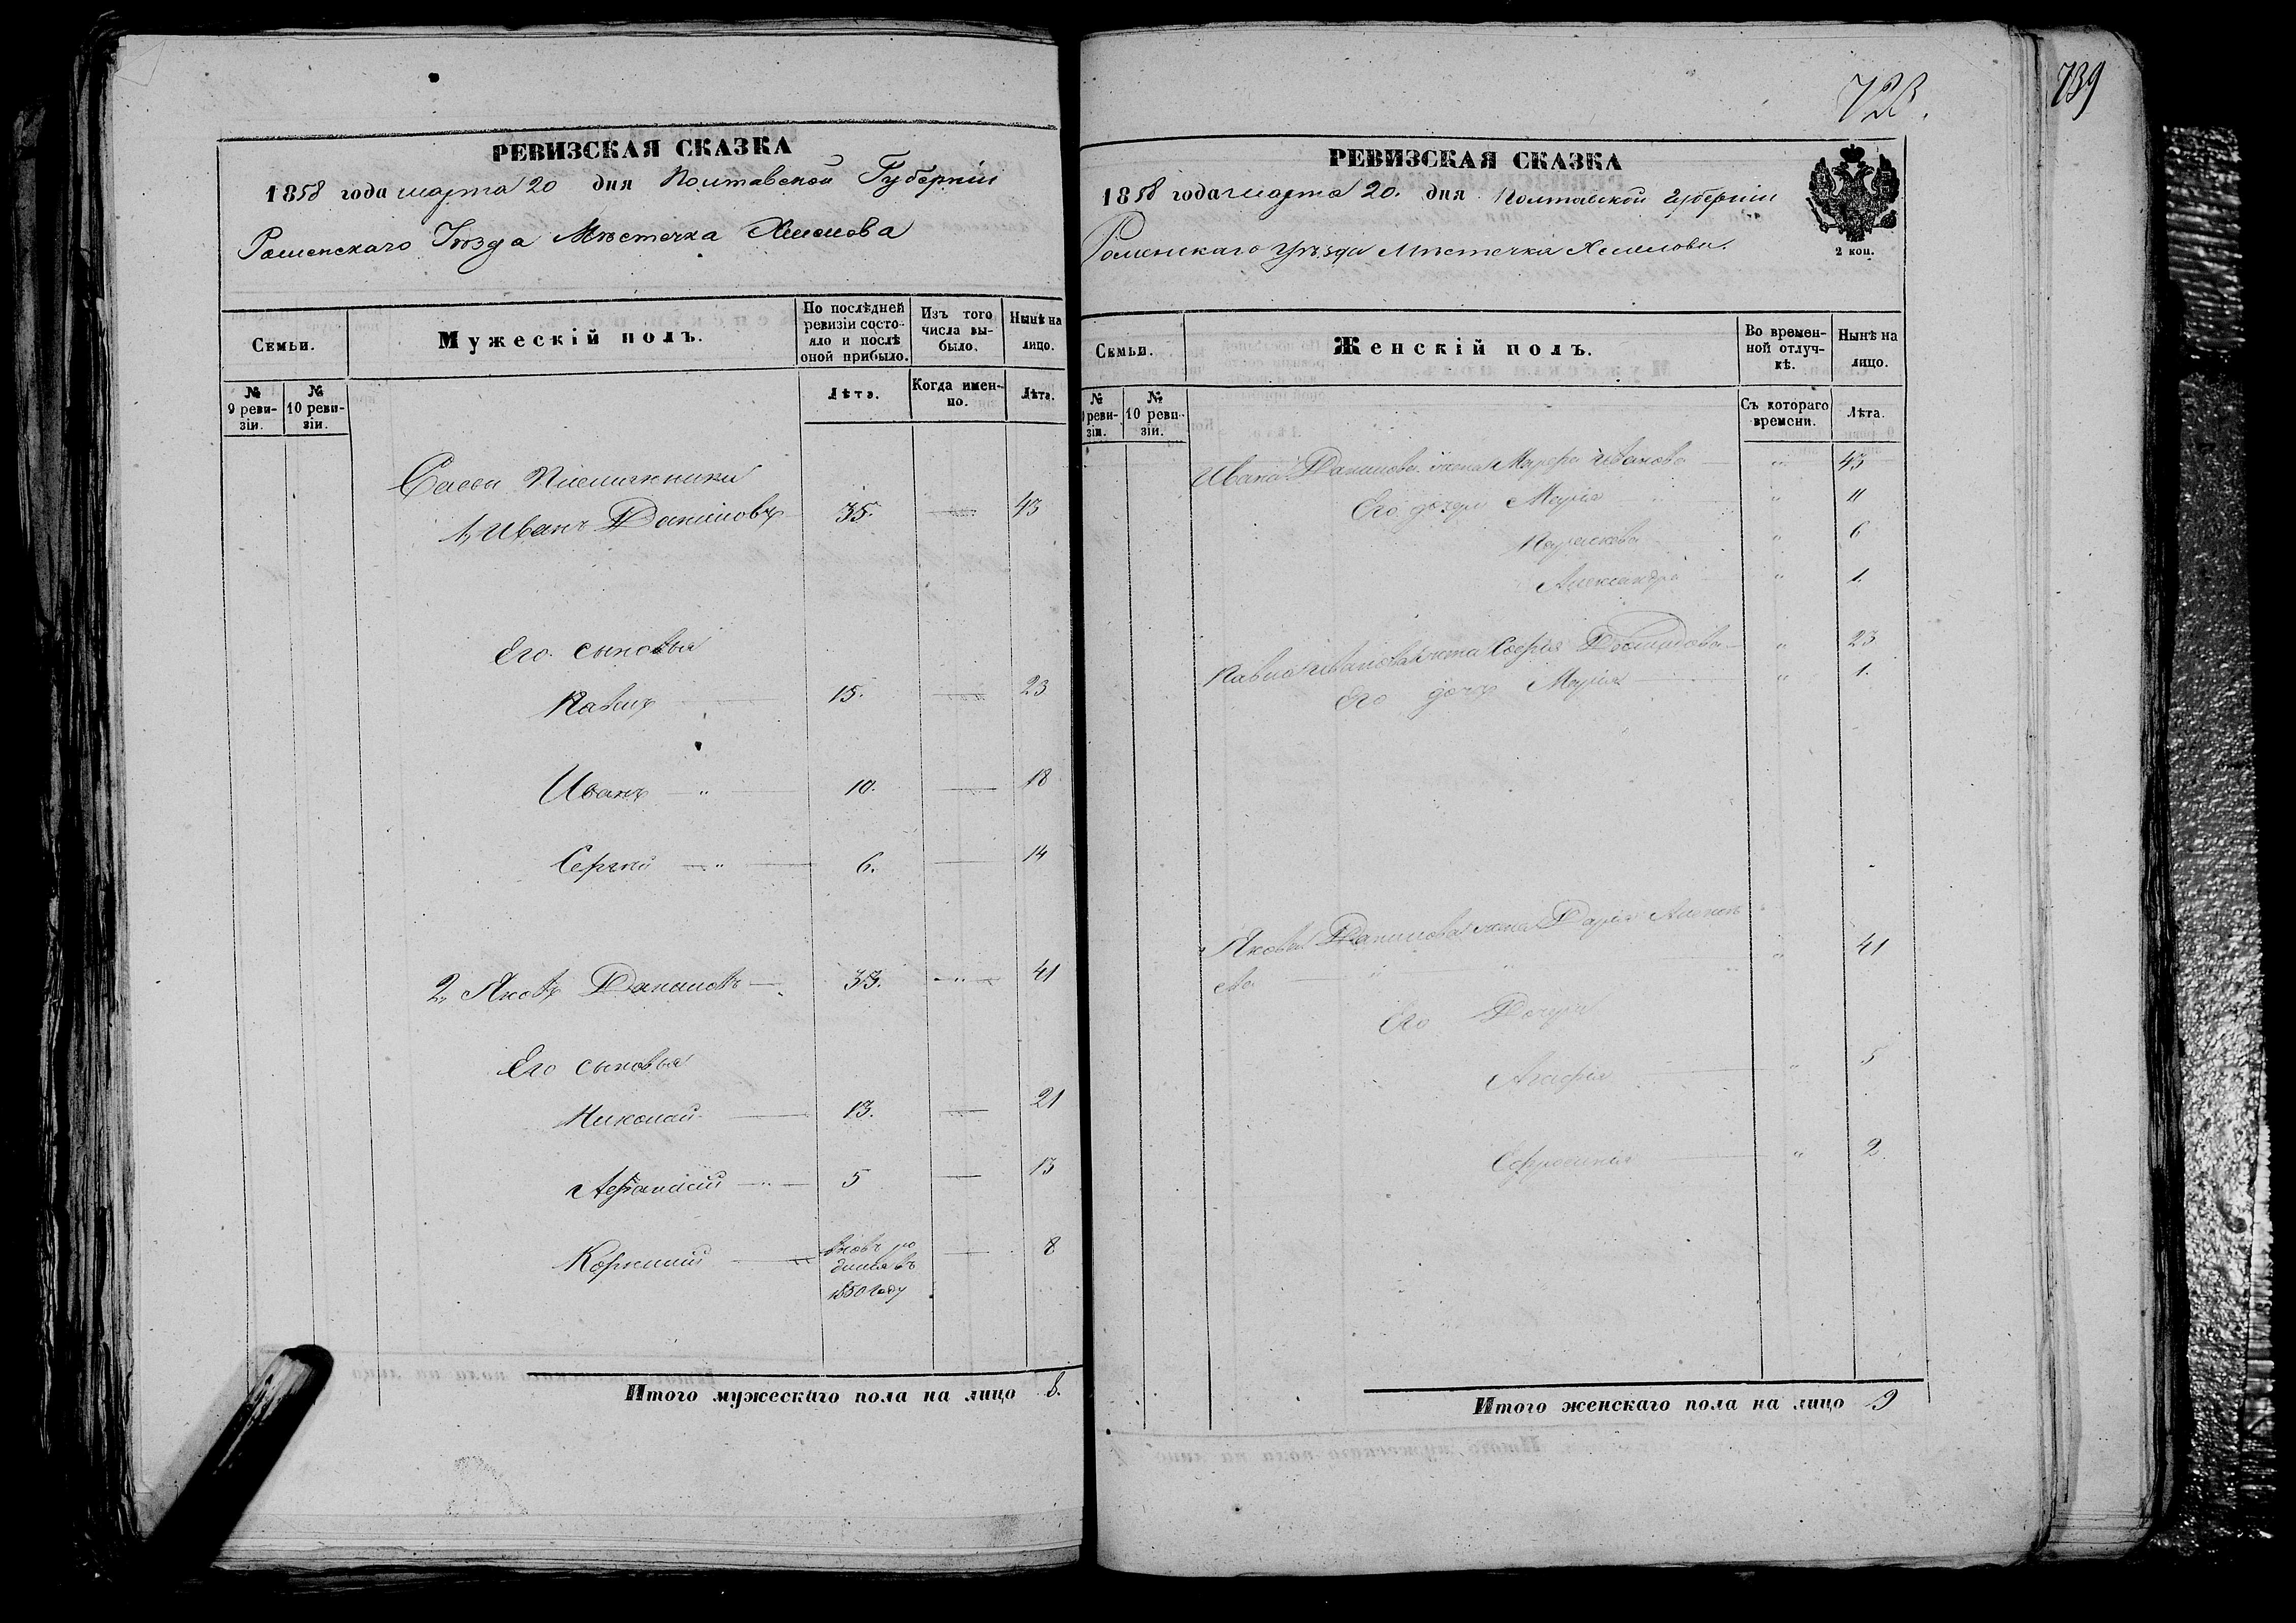 РЕВИЗСКАЯ СКАЗКА
1858 года марта 20 дня Полтавской Губерніи
Роменскаго Уѣзда Мѣстечка Хмелова
Семьи.
Мужескій полъ.
По послѣдней ревизіи состояло и послѣ оной прибыло.
Изъ того числа выбыло.
Нынѣ на лицо.
№ 9 ревизіи.
№ 10 ревизіи.
Лѣта.
Когда именно.
Лѣта.
1, Иванъ Даниловъ 35. 43
Его сыновья
Павелъ 15. 23
Иванъ — " 10. 18
Сергѣй — " 6. 14
2, Яковъ Даниловъ — 33. — " — 41
Его сыновья
Николай 13. — 21
Афанасій — " — 5 — 13
Корнилій вновь ро — 8
дился въ
1850 году
Итого мужескаго пола на лицо 8.
739
723.
РЕВИЗСКАЯ СКАЗКА
1858 года марта 20. дня Полтавской Губерніи
Роменскаго Уѣзда Мѣстечка Хмелова.
2 коп.
Семьи.
Женскій полъ.
Во временной отлучкѣ.
Нынѣ на лицо.
№ 9 ревизіи.
№ 10 ревизіи.
Съ котораго времени.
Лѣта.
Ивана Данилова жена Марфа Иванова " 43
Его дочери Марія " 11
Парасковья " 6
Александра " 1.
Павла Иванова жена Софія Демидова — " 23
Его дочь Марія " 1.
Якова Данилова жена Дарія Алексѣ
ева " 41
Его Дочери
Агафія " 5
Ефросинія " 2.
Итого женскаго пола на лицо 9